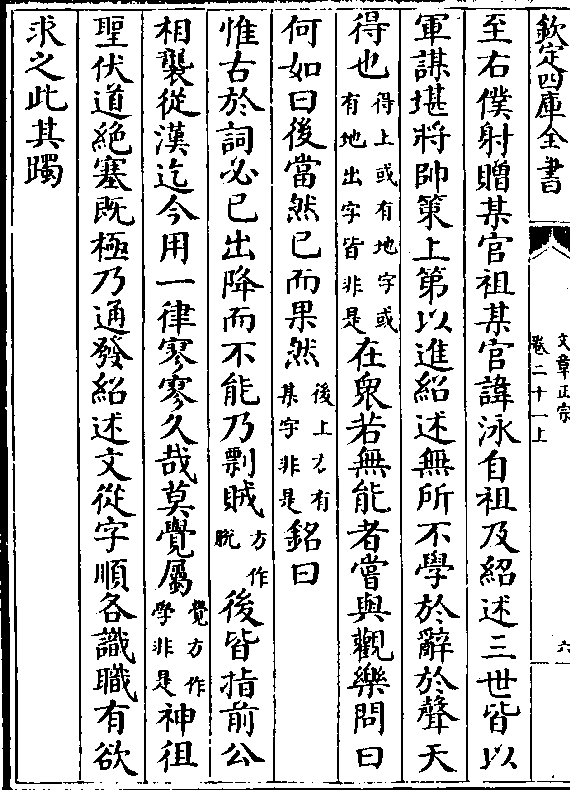 欽定四庫全書
文章正宗
卷二十一上
六
至右僕射贈某官祖某官諱泳自祖及紹述三世皆以
軍謀堪將帥策上第以進紹述無所不學於辭於聲天
得也得上或有地字或有地出字皆非是在衆若無能者嘗與觀樂問曰
何如曰後當然已而果然後上方有某字非是銘曰
惟古於詞必已出降而不能乃剽賊方作脱後皆指前公
相襲從漢迄今用一律寥寥久哉莫覺屬覺方作學非是神徂
聖伏道絶塞既極乃通發紹述文從字順各識職有欲
求之此其躅